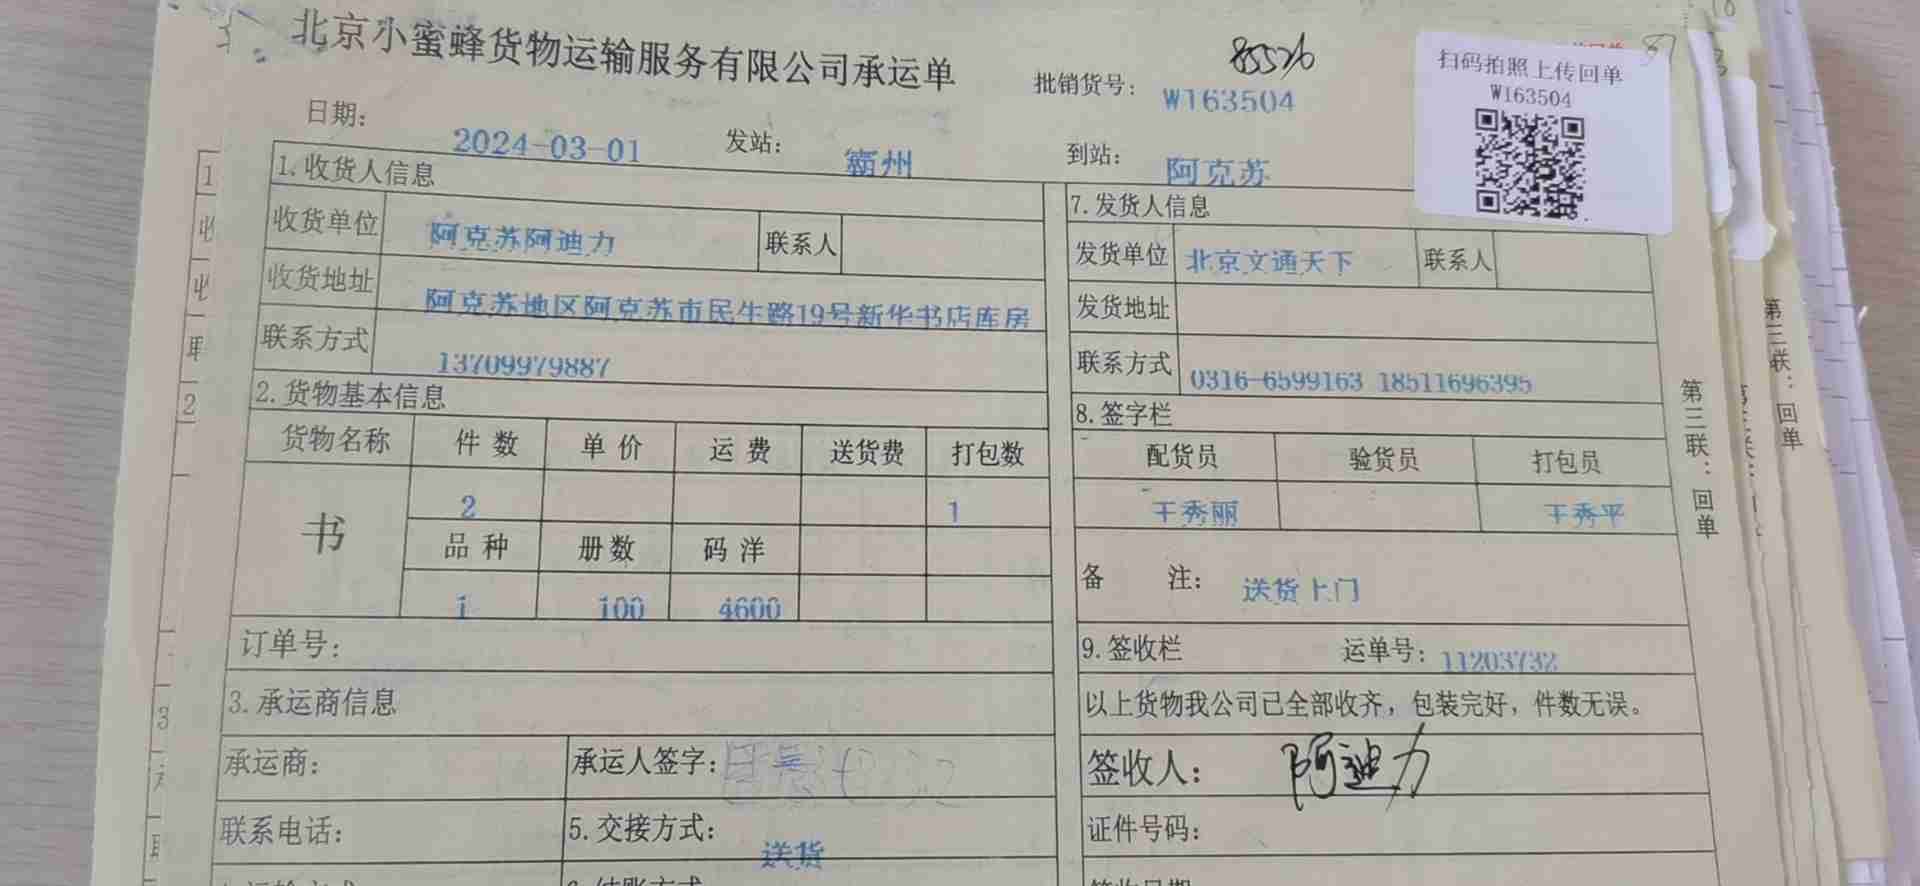 北京小蜜蜂货物运输服务有限公司承运单
85526
批销货号: W163504
扫码拍照上传回单
W163504
日期: 2024-03-01 发站: 霸州 到站: 阿克苏
1.收货人信息
收货单位 阿克苏阿迪力 联系人
收货地址 阿克苏地区阿克苏市民生路19号新华书店库房
联系方式 13709979887
2.货物基本信息
货物名称 件数 单价 运费 送货费 打包数
书 2 1
品种 册数 码洋
1 100 4600
订单号:
3.承运商信息
承运商: 承运人签字:
联系电话: 5.交接方式: 送货
7.发货人信息
发货单位 北京文通天下 联系人
发货地址
联系方式 0316-6599163 18511696395
8.签字栏
配货员 验货员 打包员
王秀丽 王秀平
备 注: 送货上门
9.签收栏 运单号: 11203732
以上货物我公司已全部收齐，包装完好，件数无误。
签收人: 阿迪力
证件号码:
第三联：回单
第三联：回单